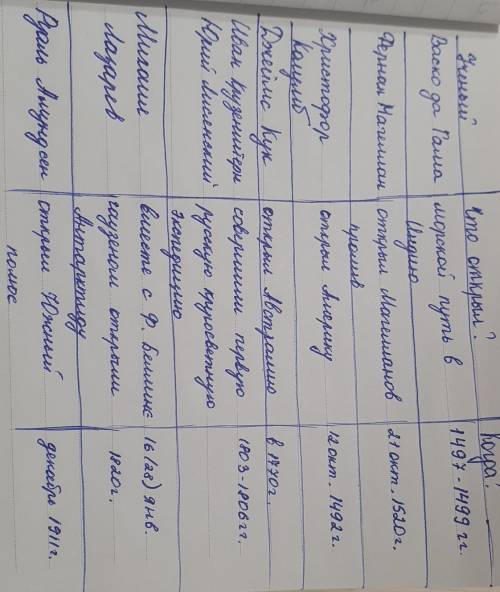 Ученый Что открыл? Когда?
Васко да Гама морской путь в 1497-1499 гг.
Индию
Фернан Магеллан открыл Магелланов 21 окт. 1520г.
пролив
Христофор открыл Америку 12 окт. 1492г.
Колумб
Джеймс Кук открыл Австралию в 1770г.
Иван Крузенштерн совершили первую 1803-1806гг.
Юрий Лисянский русскую кругосветную
экспедицию
Михаил вместе с Ф. Беллинс 16(28) янв.
Лазарев гаузеном открыли 1820г.
Антарктиду
Руаль Амундсен открыл Южный декабрь 1911г.
полюс